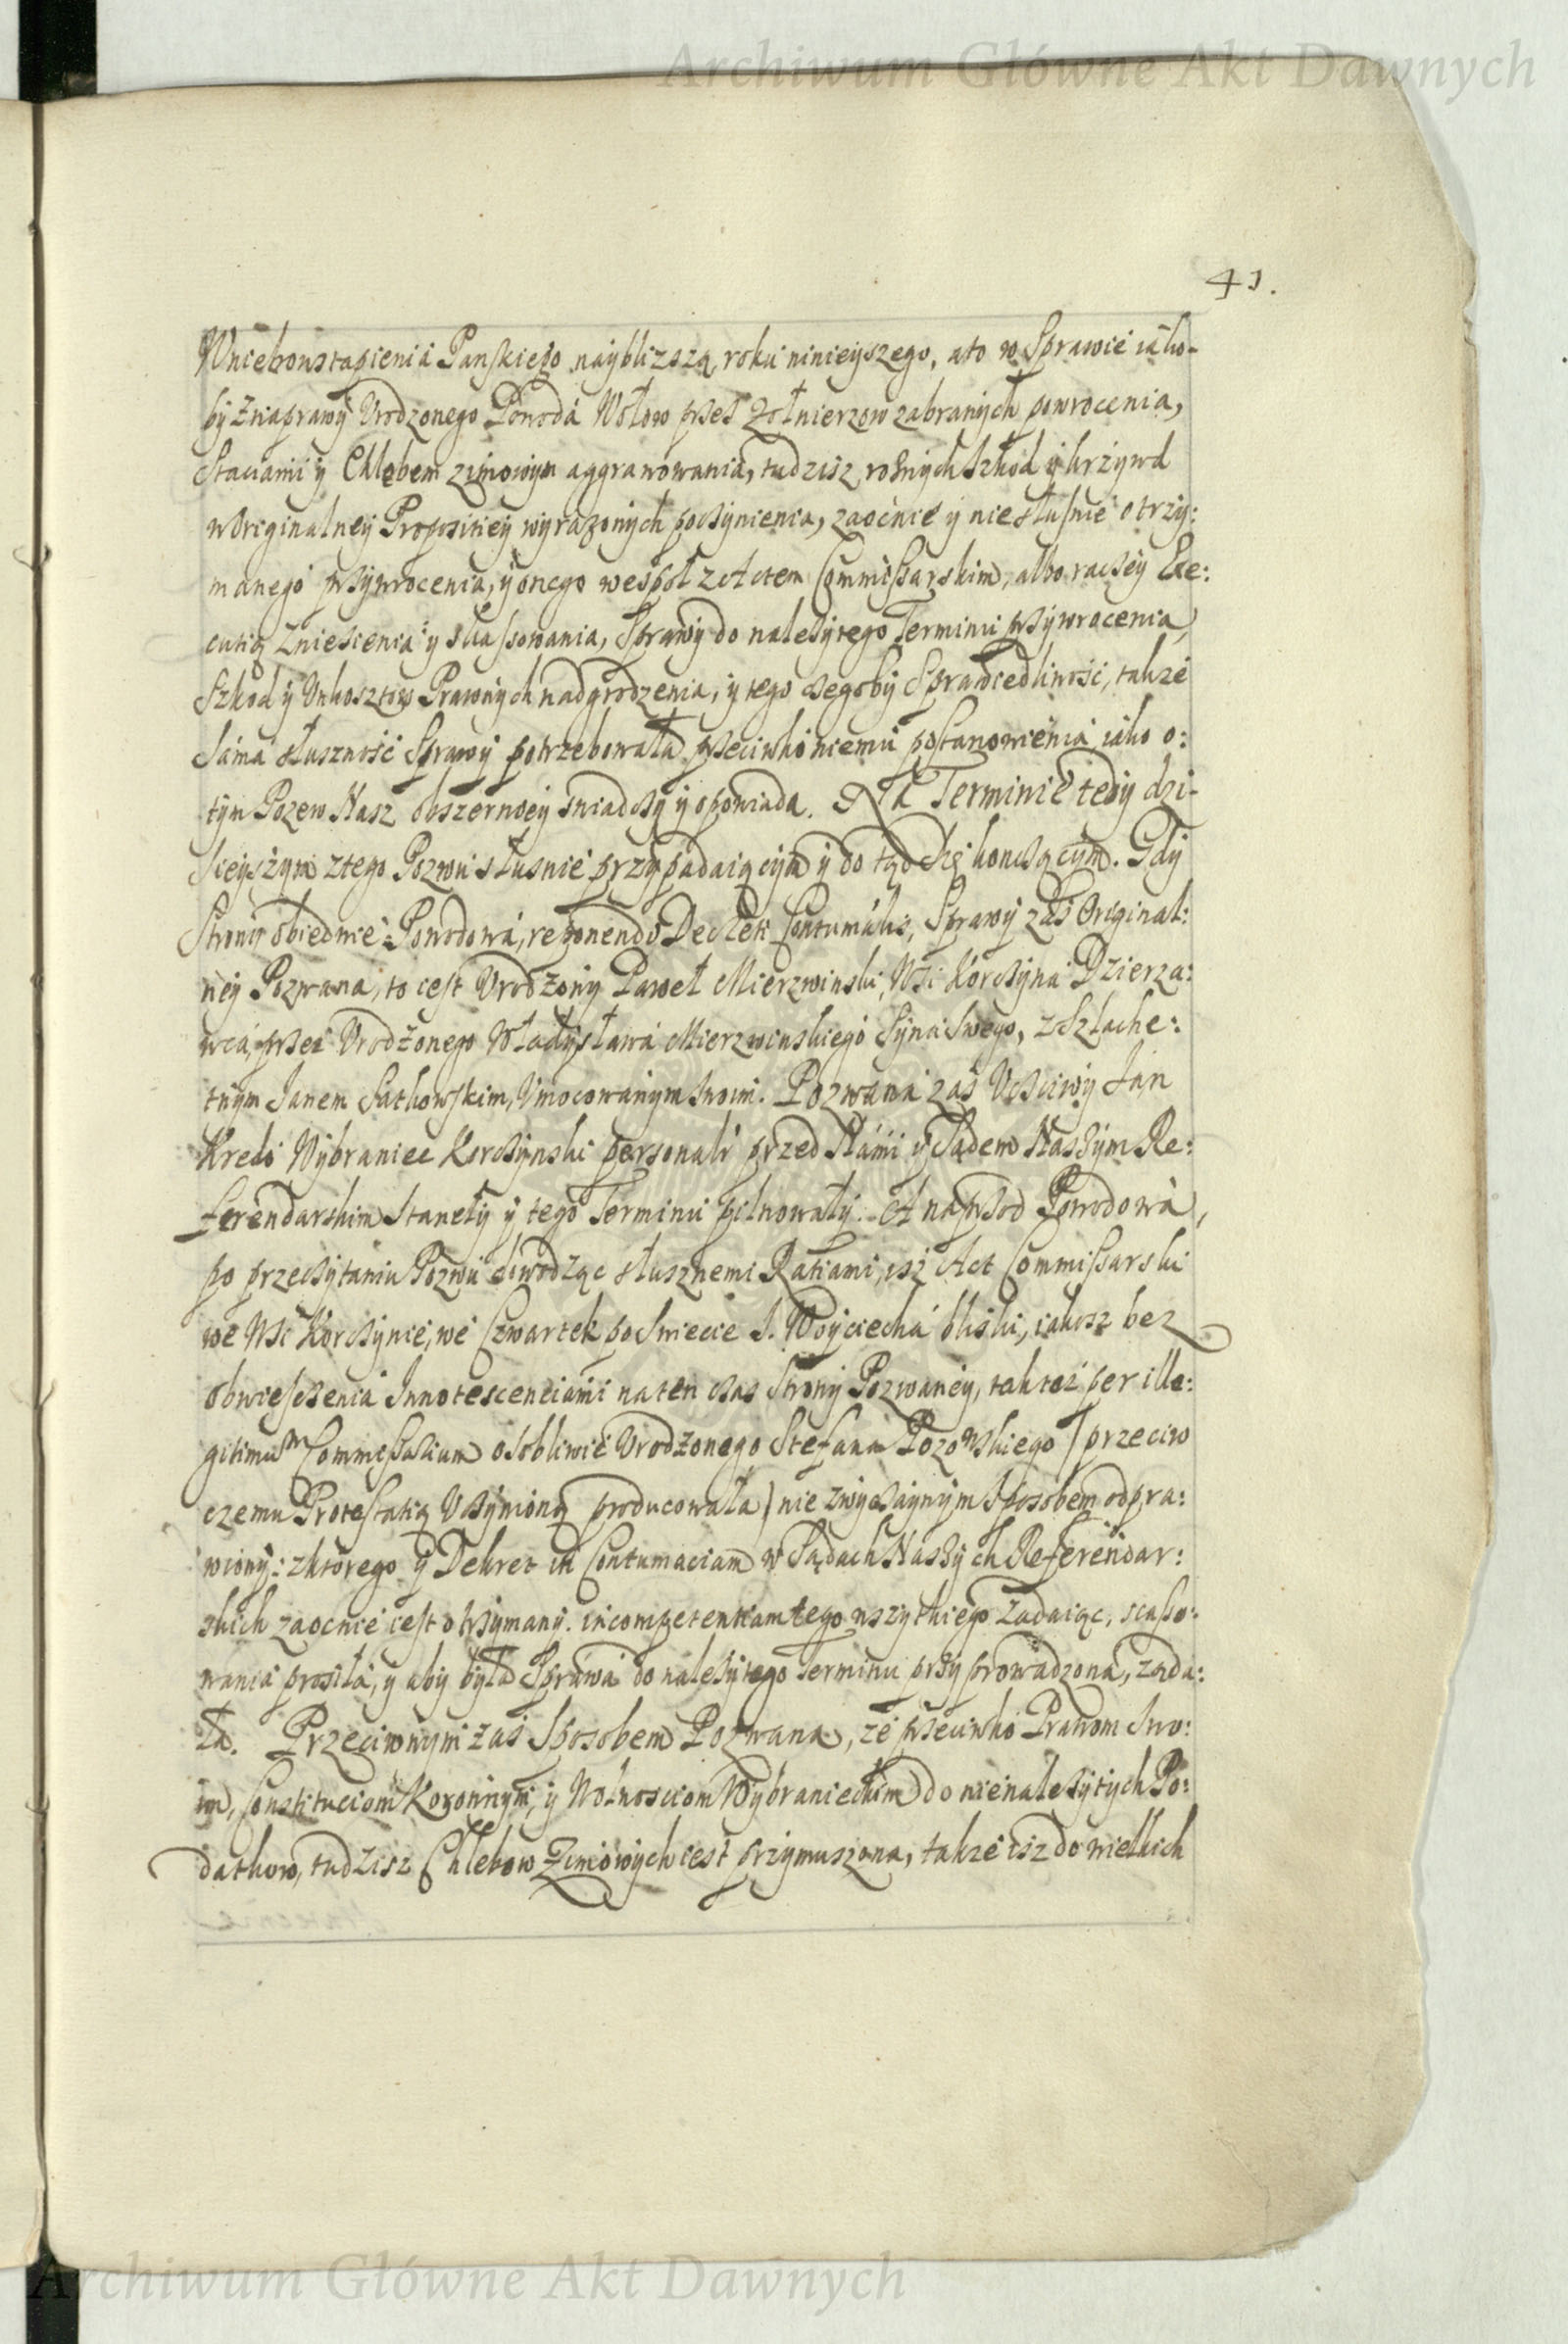 Archiwum Główne Akt Dawnych
41.
Wniebowstąpienia Panskiego naybliższą roku ninieyszego, a to w Sprawie iáko-
by z naprawy Vrodzonego Powodá Wołow przez Zołnierzow zabranych powrocenia,
Staciami y Chlebem zimowym aggrawowania, tudzisz roznych szkod y krzywd
w Originalney Propositiey wyrazonych poczynienia, zaocnie y niesłusnie otrzy:
manego przywrocenia, y onego wespoł z Actem Commissarskim, albo raczey Exe:
cutią zniesienia y skassowania, Sprawy do nalezytego Terminu przywrocenia,
Szkod y Vnkosztow Prawnych nadgrodzenia, y tego czegoby Sprawiedliwość, takze
sáma słuszność Sprawy potrzebowała przeciwko niemu postanowienia iako o:
tym Pozew Nasz obszerniey swiadczy y opowiada. Na Terminie tedy dzi-
sieyszym z tego Pozwu słusnie przypadaiącym y do tąd się konczącym. Gdy
Strony obiedwie Powodowa, reponendo Decreti Contumatis, Sprawy zaś Original:
ney Pozwana, to iest Vrodzony Paweł Mierzwinski, Wsi Korczyna Dzierza:
wca, przez Vrodzonego Władysława Mierzwinskiego Syna swego, z Szlache:
tnym Janem Sathowskim, Vmocowanym swoim. Pozwana zas Vczciwy Jan
Kreło Wybraniec Korczynski personalr przed Námi y Sądem Naszym Re:
ferendarskim Stanęły y tego Terminu pilnowały. A naprzod Powodowa,
po przeczytaniu Pozwu dowodząc słusznemi Ratiami, isz Act Commissarski
we Wsi Korczynie, we Czwartek po Swiecie S. Woyciecha bliski, iakosz bez
obwieszczenia Innotescenciami na ten czas Strony Pozwaney, tak tez per ille:
gitimum Commissarium osobliwie Vrodzonego Stefana Pozowskiego / przeciw
czemu Protestatią Vczynioną producowała / nie zwyczaynym Sposobem odpra:
wiony: z ktorego y Dekret in Contumaciam w Sądach Naszych Referendar:
skich zaocnie iest otrzymany. incompetentiam tego wszytkiego zadaiąc, scasso:
wania prosiła, y aby była Sprawa do nalezytego Terminu przyprowadzona, ząda:
ła. Przeciwnym zaś Sposobem Pozwana, ze przeciwko Prawom Swo:
im, Constituciom Koronnym, y Wolnosciom Wybranieckim do nienalezytych Po:
datkow, tudzisz Chlebow Zimowych iest przymuszona, takze isz do wielkich
Archiwum Główne Akt Dawnych